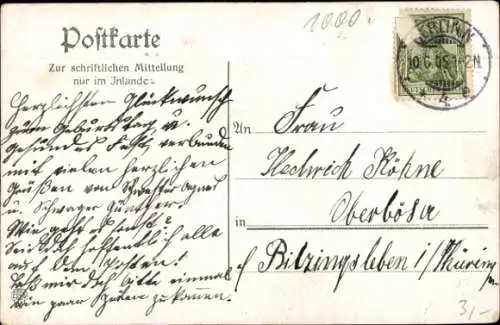 1000.
Postkarte
Zur schriftlichen Mitteilung
nur im Inlande.
BERLIN N
10.6.05 1-2N
Herzlichsten Glückwunsch
zum Geburtstag u.
gesundes Fest, verbunden
mit vielen herzlichen
Grüßen von Schwester Agnes
u. Schwager Günther.
Wie geht es sonst?
Seid doch hoffentlich alle
auf dem Posten!
Laß mir doch bitte einmal
ein paar zukommen.
An
Frau
Hedwich Köhne
in
Oberbösa
Bilzingsleben i/Thüringen
3,-